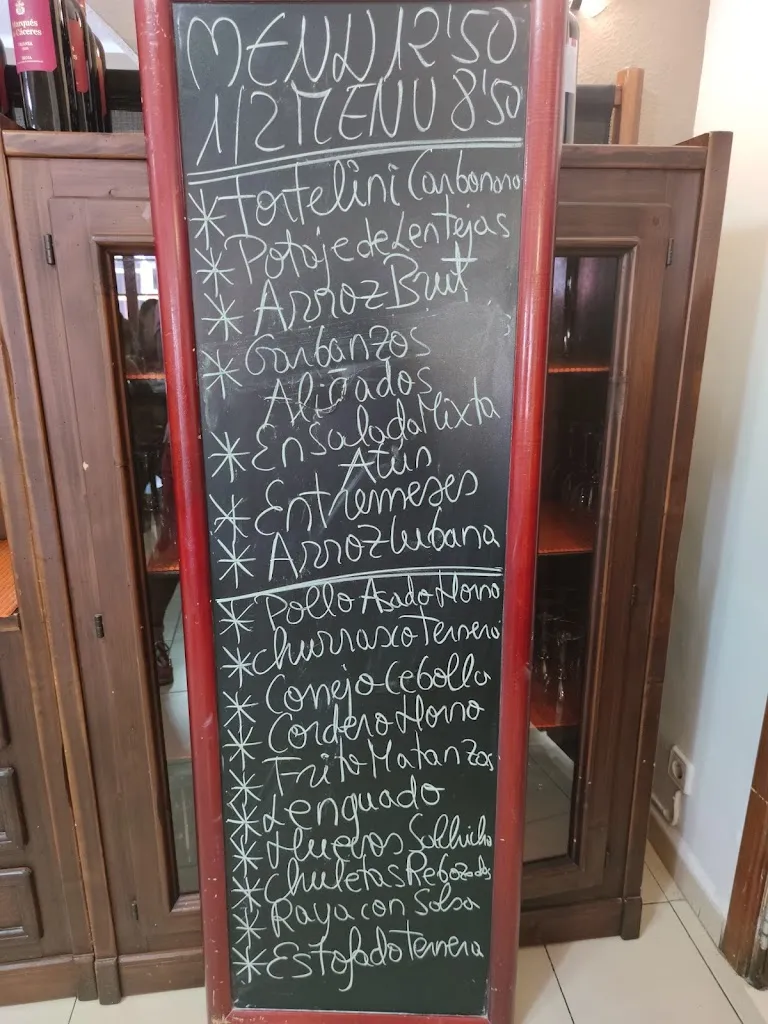 MENU 12'50
1/2 MENU 8'50
* Tortelini Carbonara
* Potaje de Lentejas
* Arroz Brut
* Garbanzos
Aliñados
* Ensalada Mixta
Atun
* Entremeses
* Arroz Cubana
* Pollo Asado Horno
* Churrasco Ternera
* Conejo Cebolla
* Cordero Horno
* Frito Matanzas
* Lenguado
* Huevos Salchicha
* Chuletas Rebozadas
* Raya con Salsa
* Estofado Ternera